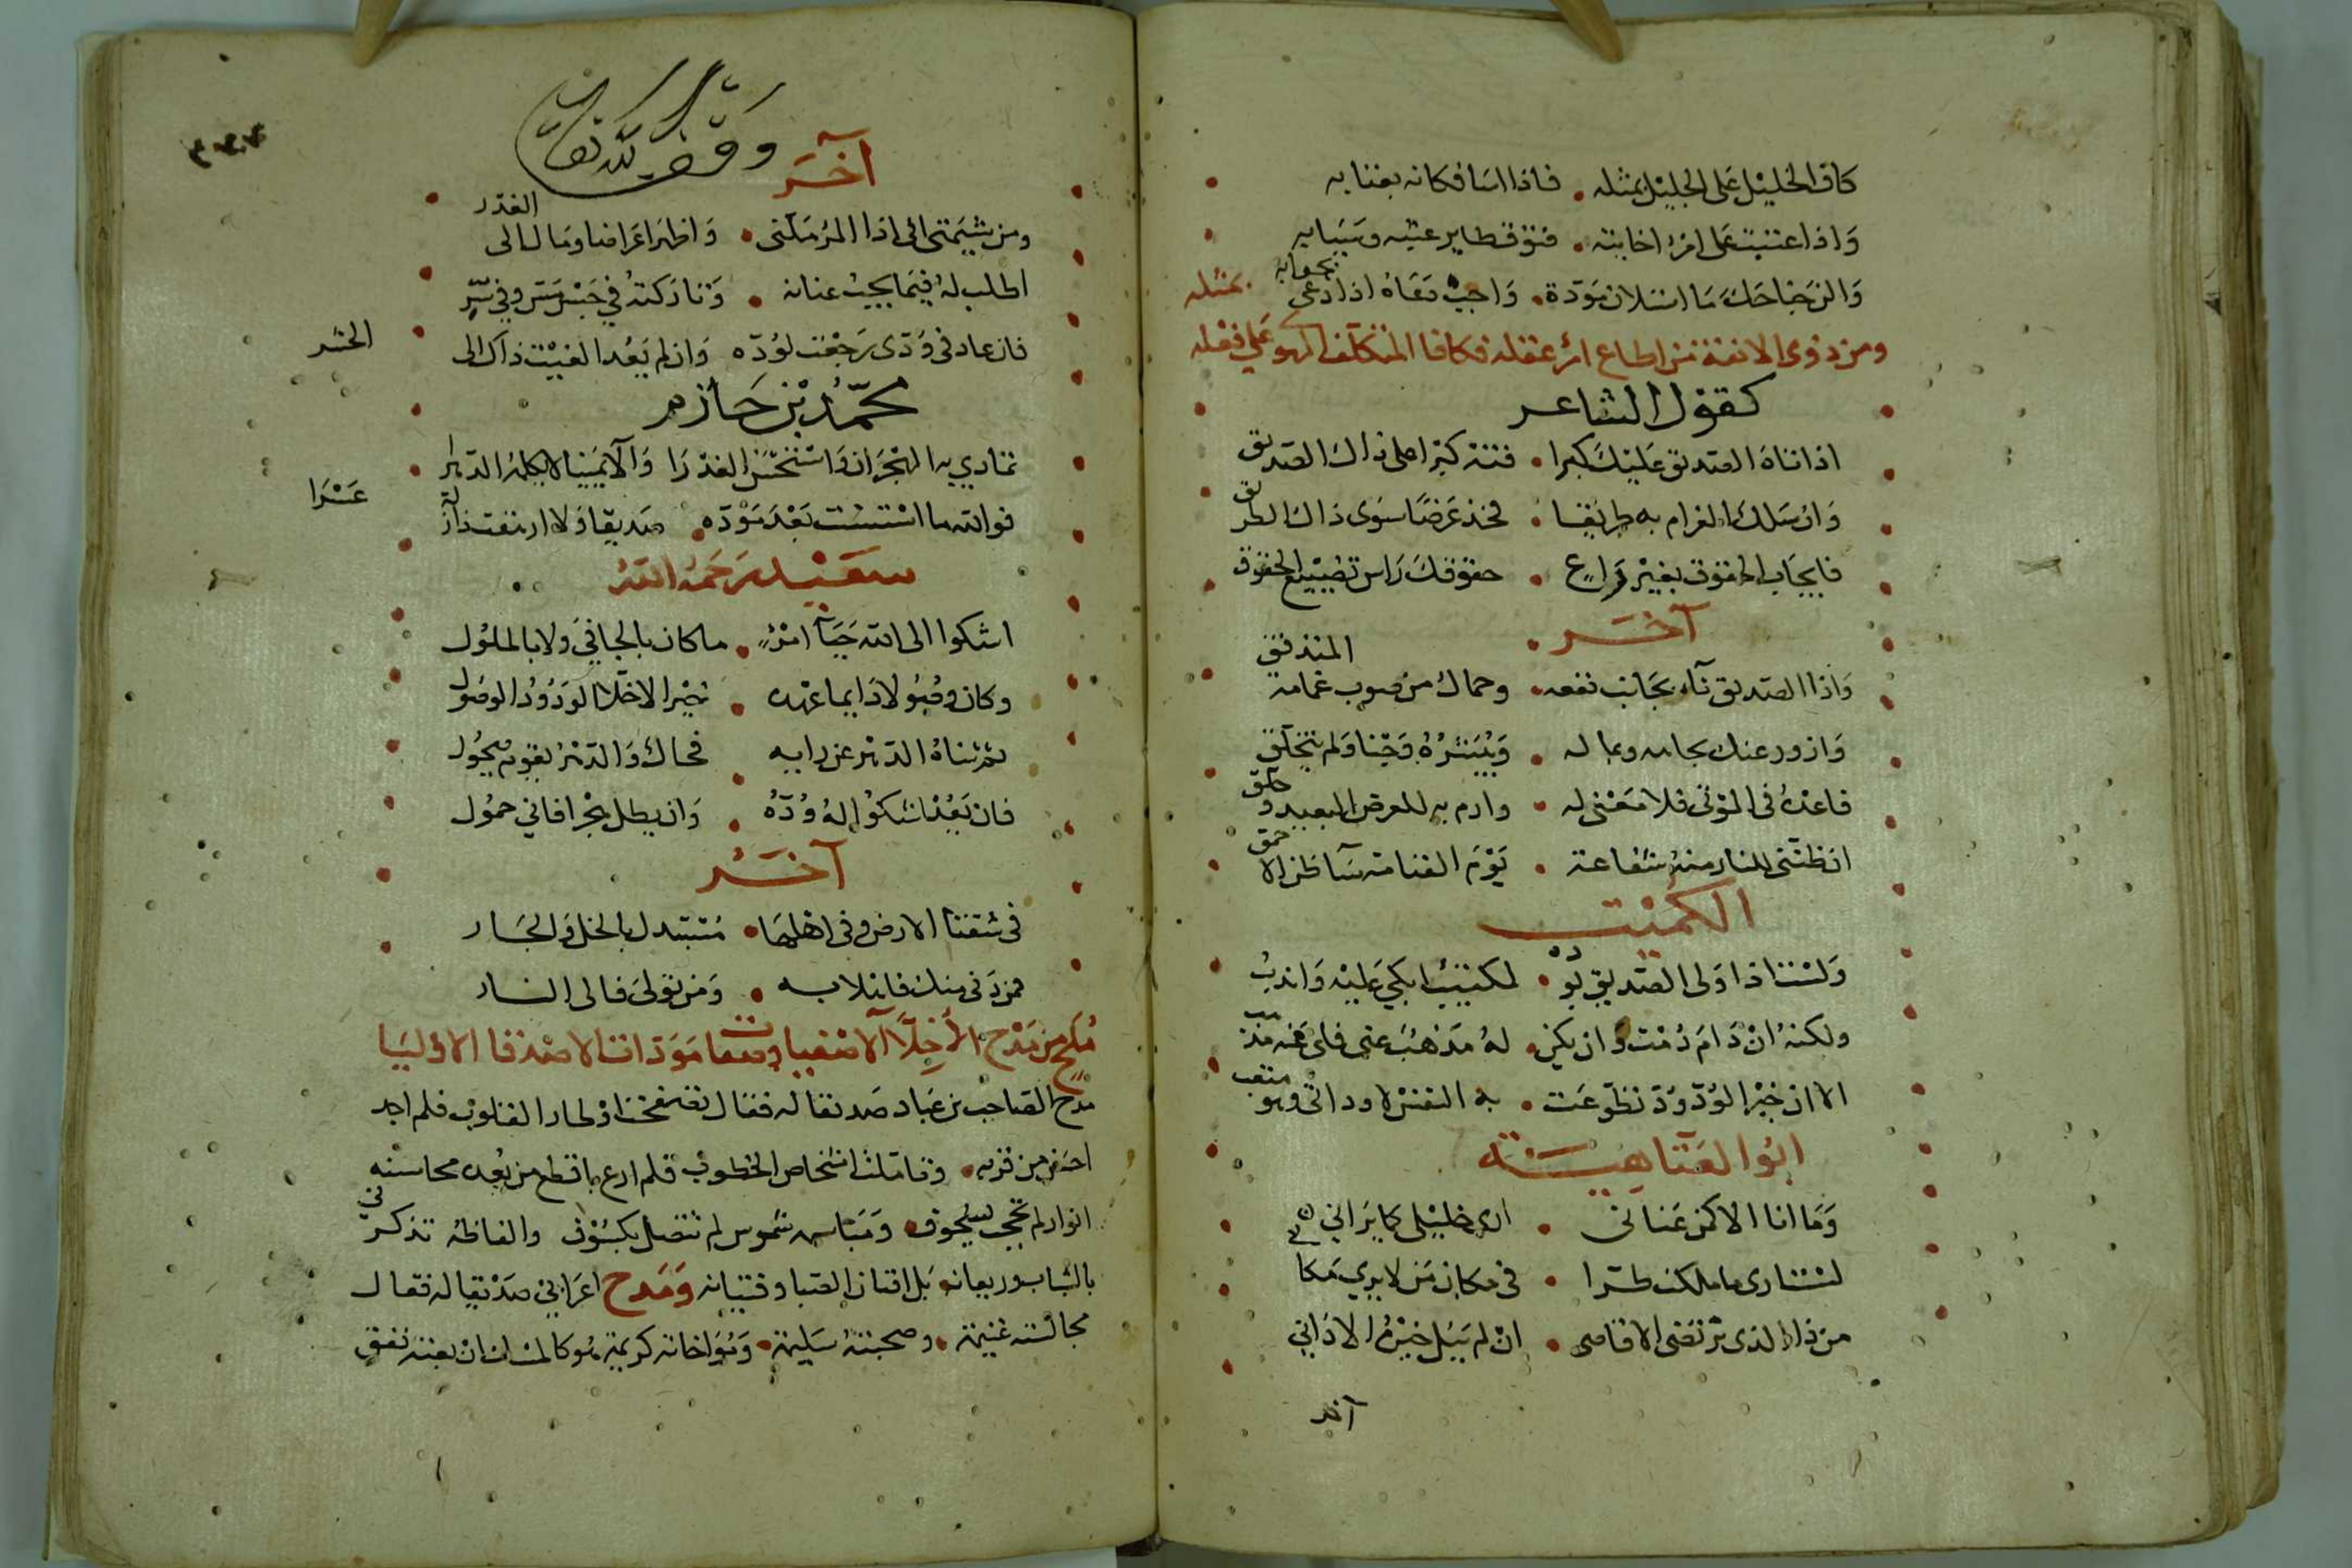 كاف الخليل على الجليل بمثله • فاذا اسا فكافه بعتابه
واذا عتبت على امرئ احببته • فتوق طاير عتبه وسبابه
والن جناحك ما استلان مودة • واجب دعاه اذا دعى بجوابه
ومن ذوى الانفة من اطاع امر عقله فكافا المتكلف الهو على فعله بمثله
كقول الشاعر
اذا تاه الصديق عليك كبرا • فته كبرا على ذاك الصديق
وان سلك الغرام به طريقا • فخذ عرضا سوى ذاك الطريق
فايجاب الحقوق بغير راع • حقوقك راس تضييع الحقوق
آخر
واذا الصديق نآى بجانب نفعه • وحماك من صوب غمامه المتدفق
وازور عنك بجاهه وبماله • وببشره وجنا ولم يتخلق
فاعده فى الموتى فلا معنى له • وارم به للعرض البعيد وحلق
اتظننى للنار منه شفاعة • يوم القيامة سآ ظن الاحمق
الكميت
ولست اذا ولى الصديق بوده • لمكتيب ابكى عليه واندب
ولكنه ان دام دمت وان يكن • له مذهب عنى فلى عنه مذهب
الا ان خير الود ود تطوعت • به النفس لا ود اتى وهو متعب
ابو العتاهية
وما انا الا كمن عنانى • ارى خليلى كما يرانى
لست ارى ما ملكت طرا • فى مكان من لا يرى مكانى
من ذا الذى ترتضى الاقاصى • ان لم ينل خيره الادانى
آخر
وقف لله تعالى
آخر
ومن شيمتى انى اذا المرء ملنى • واظهر اعراضا ومال الى الغدر
اطلب له فيما يحب عنانه • وتاركته فى حسن ستر وفى سر
فان عاد فى ودى رجعت لوده • وان لم يعد الغيت ذاك الى الحشر
محمد بن حازم
تمادى به الهجران واستحسن الغدرا • وآلا يمينا لا يكلمه الدهرا
فوالله ما استسئت بعد موده • صديقا ولا ارتفت ذا زلة عسرا
سعيد رحمه الله
اشكوا الى الله جفآ امرئ • ما كان بالجافى ولا بالملول
وكان وصولا دايما عهده • خير الاخلآ الودود الوصول
ثم ثناه الدهر عن رايه • فحال والدهر بقوم يحول
فان يعد اشكو له وده • وان يطل هجرا فانى حمول
آخر
فى سعة الارض وفى اهلها • مستبدل بالخل والجار
فمن دنى منك فاهلا به • ومن تولى فالى النار
ملح من مدح الأخلآ الاصفيا وصفات مودات الاصدقا الاوليا
مدح الصاحب بن عباد صديقا له فقال
احسن من قربه • وقابلت اشخاص الخطوب فلم ارع باقطع من بعده محاسنه
انوار لم تحجب • شموس لم تتصل بكسوف والفاظه تذكرنى
بالشباب وريعانه • بل افنان الصبا وفتيانه ومدح اعرابى صديقا له فقال
مجالسته غنيمة • وصحبته سليمة • ومواخاته كريمة هو كالمسك ان بعته نفق